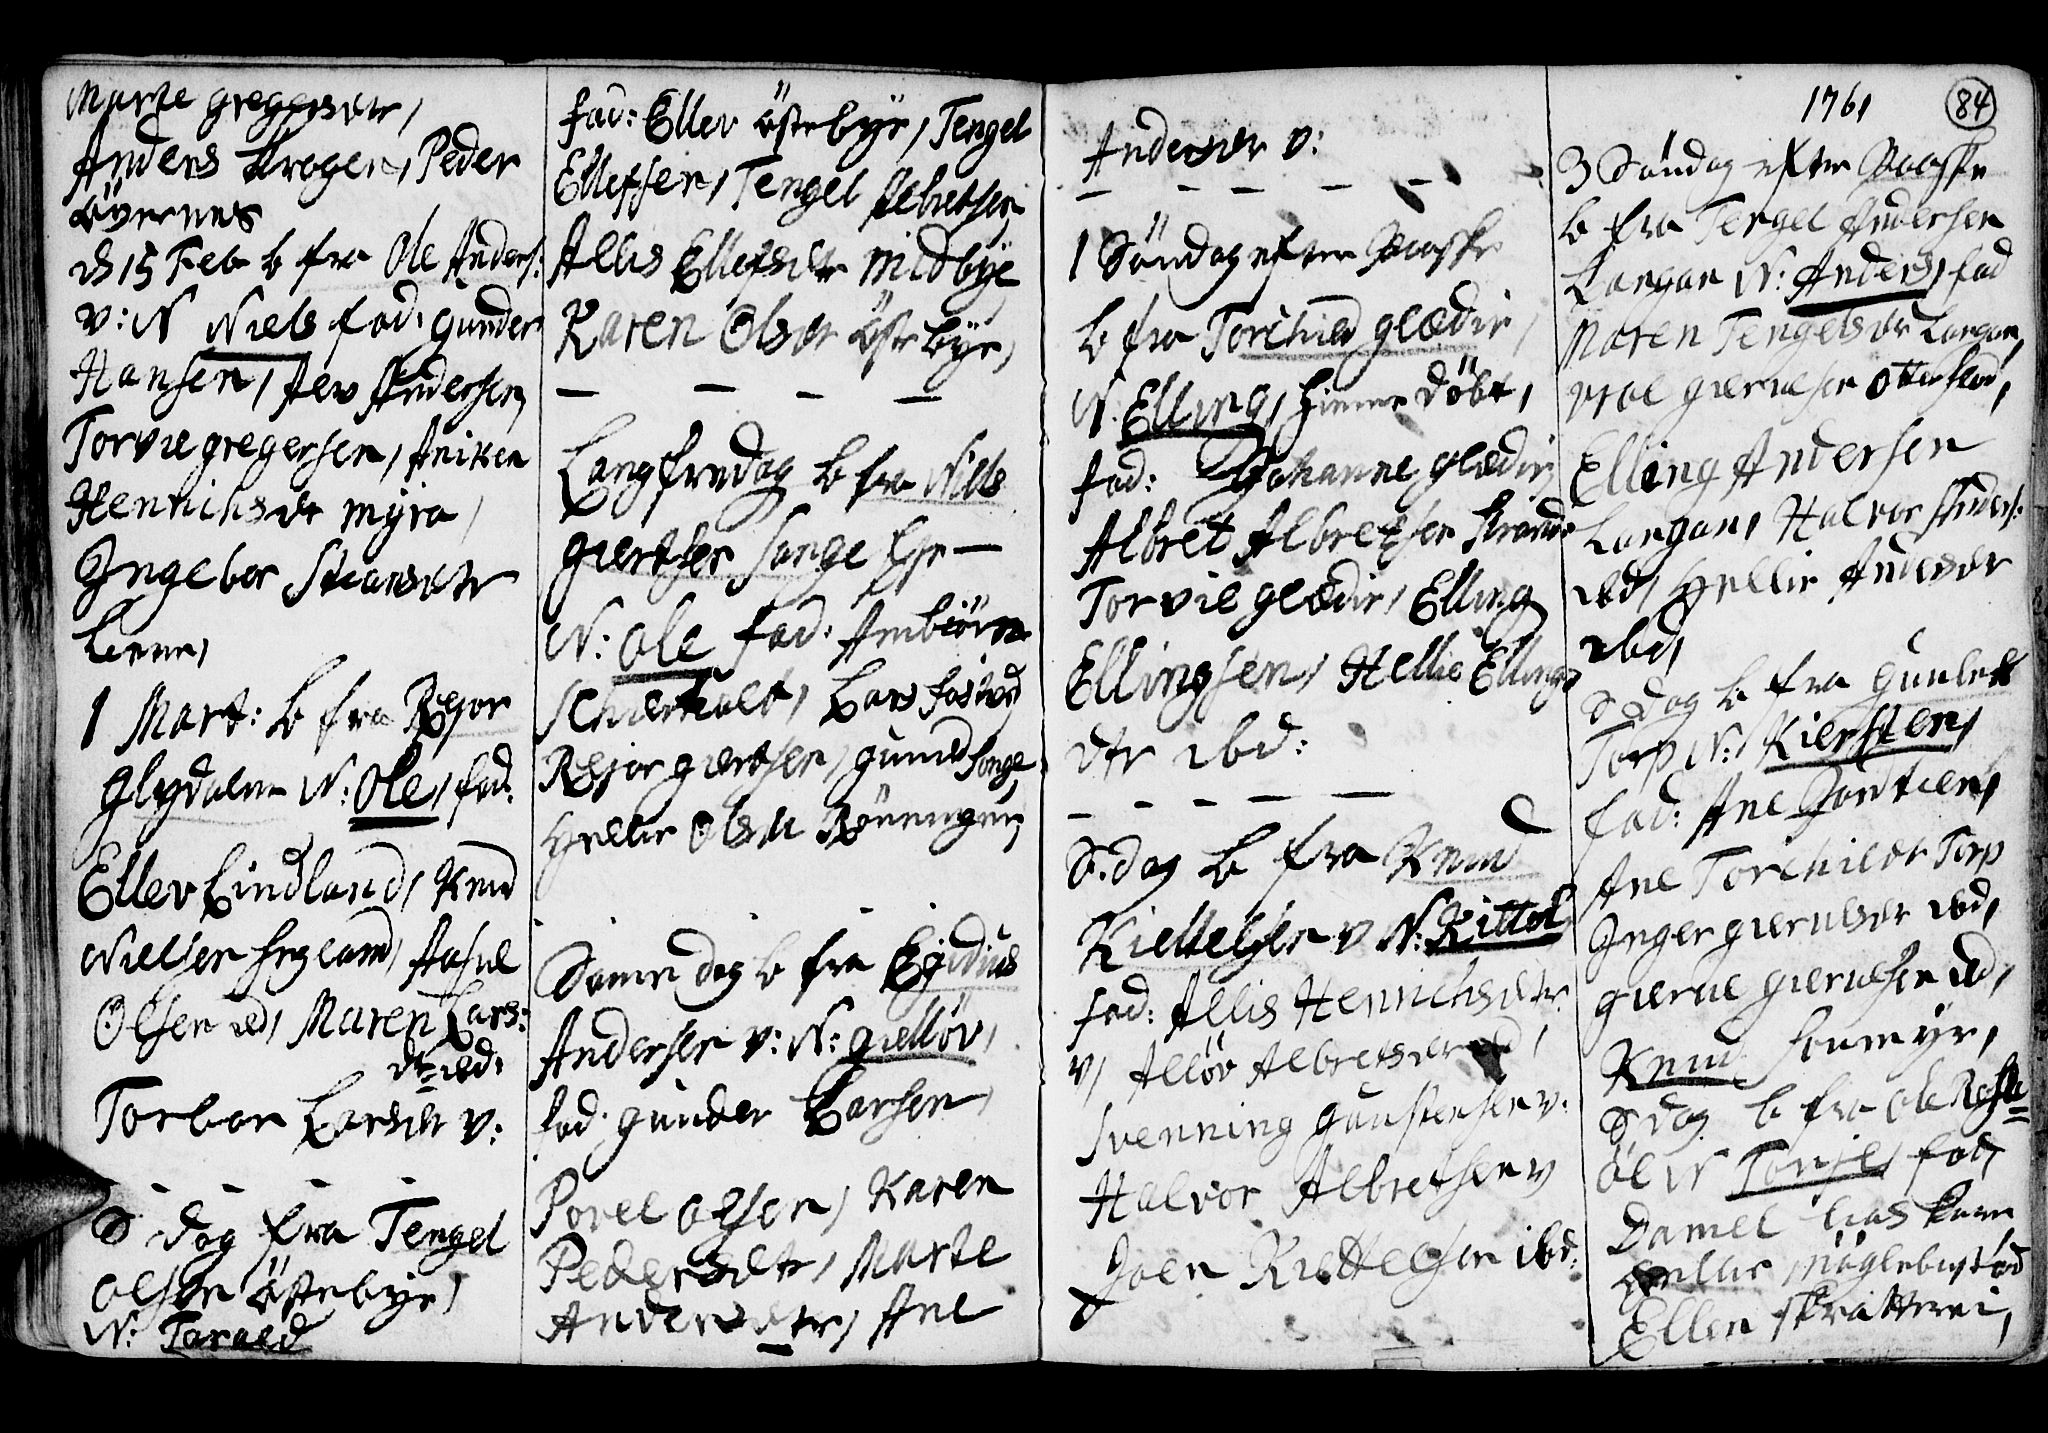 Marte gregersdtr,
Anders Kroger, Peder
Övernes
d 15 Feb b fra Ole Anders:
v: N Niels fad: gunder
Hansen, Anders
Torvil gregersen, Aniken
Henrichsdtr myra,
Ingebor
1 Mart: b fra Rejor
glydalen N: Ole, fad.
Ellev Lindland, Knud
Nielsen England, Aasul
Olsen ibd, Maren Lars:
dtr ibd:
Torbor Larsdtr v:
S dag fra Tengel
Olsen Östebye,
N: Tarald
fad: Ellev Östebye, Tengel
Ellefsen, Tengel Albretsen,
Allis Ellefsdtr midbye
Karen Olsdtr Östebye,
Langfredag b fra Niels
giertsen Songe
N: Ole fad: Anbiörn
Lars
Rejor giertsen, gunild Songe,
Hellie Olsdtr Röningen,
Same dag b fra Egidius
Andersen v: N: giellöv,
fad: gunder Larsen,
Povel Olsen, Karen
Pedersdtr, Marte
Andersdtr, Ane
Andersdtr v:
1 Söndag efter Paaske
b fra Torchild glædie,
N. Elling, hieme döbt,
fad: Johanne glædie,
Albret Albretsen Strand
Torvil glædie, Elling
Ellingsen, Hellie Ellings
dtr ibd:
S. dag b fra Knud
Kiettelsen v N: Kittel
fad: Allis Henrichsdtr
v, Allöv Albretsdtr ibd,
Svenning gunstensen v:
Halvor Albretsen v
Joen Kiettelsen ibd:
1761
84
3 Söndag efter Paaske
b fra Tengel Andersen
Langan N: Anders, fad
Maren Tengelsdtr Langan,
gierulsen
Elling Andersen
Langan, Halvor Anders:
ibd, Hellie Andersdtr
ibd,
S dag b fra gunlek
Torp N: Kiersten,
fad: Ane
Ane Torchildt Torp
Inger gierulsdtr ibd,
gierul gierulsen ibd,
Knud
S dag b fra Ole
N Torjel, fad,
Daniel
Hellie
Ellen